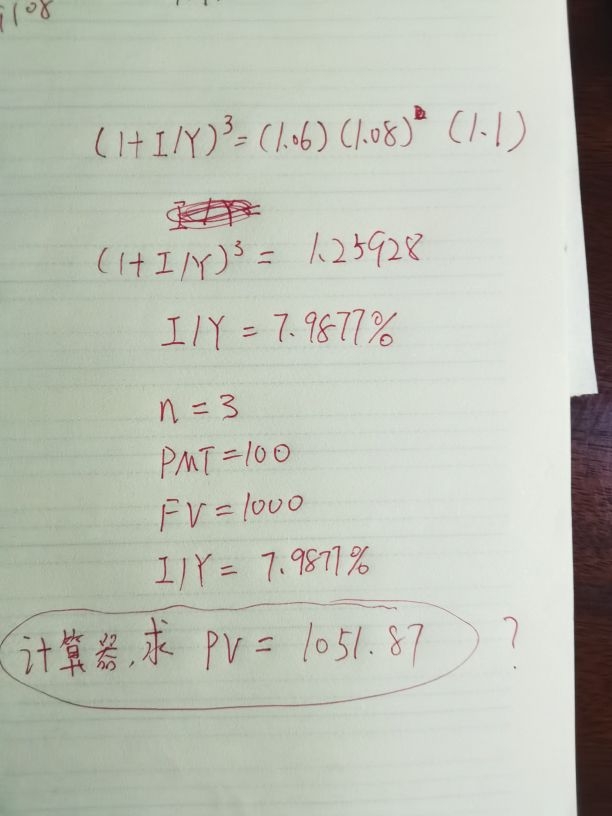 (1+I/Y)³=(1.06)(1.08) (1.1)
(1+I/Y)³= 1.25928
I/Y=7.9877%
n=3
PMT=100
FV=1000
I/Y= 7.9877%
计算器,求 PV= 1051.87 ?